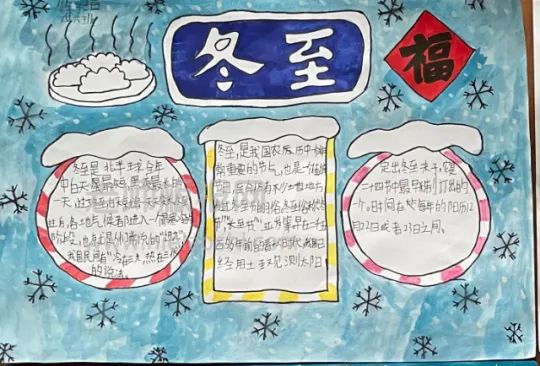 冬至
福
冬至是北半球全年
中白天最短,黑夜最长的
一天,过了冬至白天就会一天天变长
过后,各地气候都进入一个最寒冷的
阶段,也就是人们常说的"进九",
我国民间有"冷在三九,热在三伏"
的说法。
冬至,是我国农历中一个
非常重要的节气,也是一个传统
节日,至今仍有不少地方
过冬至节的习俗。冬至俗称
"长至节",早在二千
五百多年前的春秋时代,我国已
经用土圭观测太阳
定出冬至来了,它是
二十四节中最早制订出的
一个。时间在每年的阳历12
月22日或者23日之间。